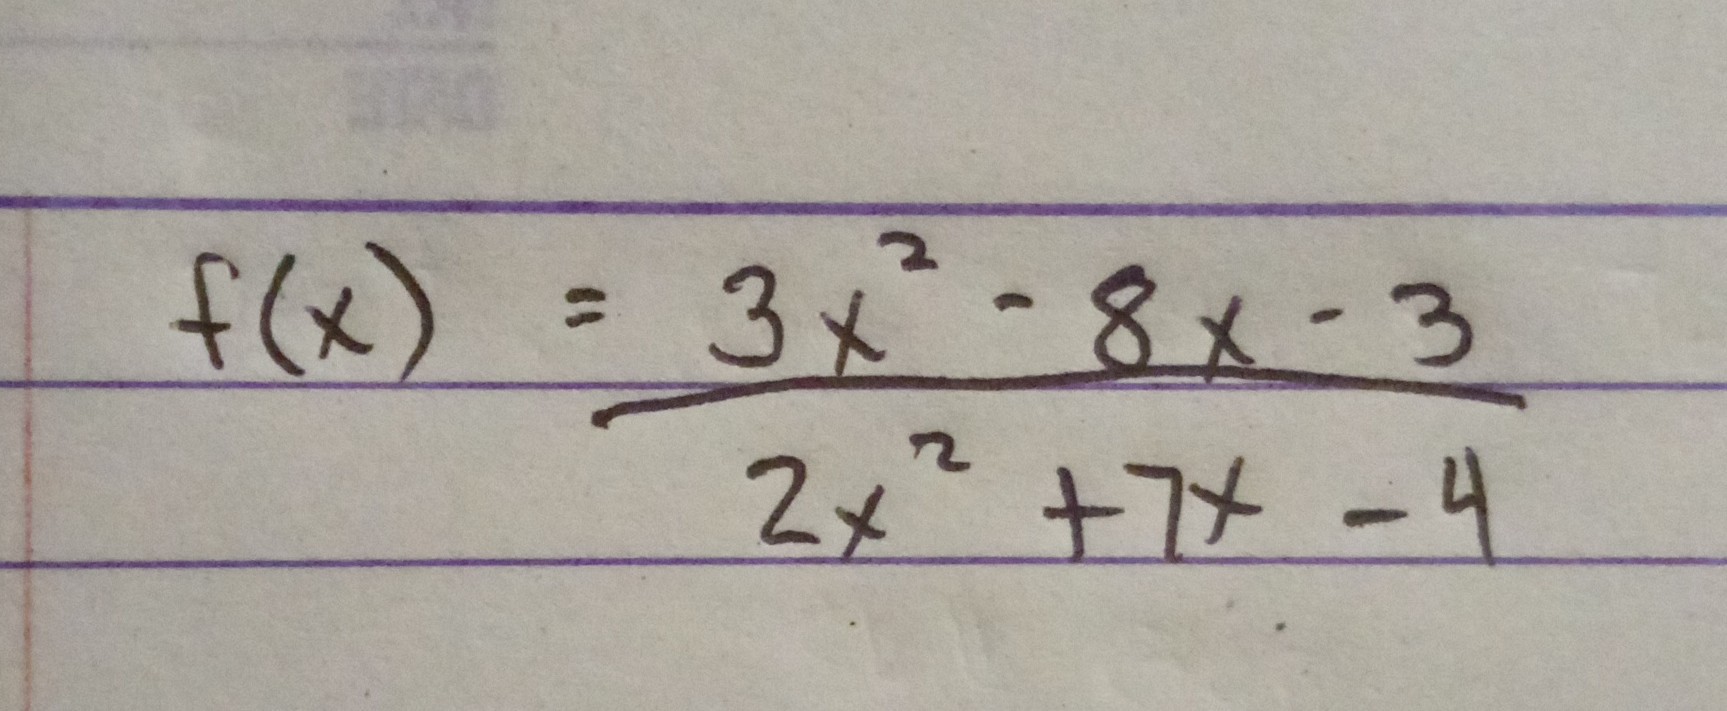 f(x) = 3x² - 8x - 3
2x² + 7x - 4